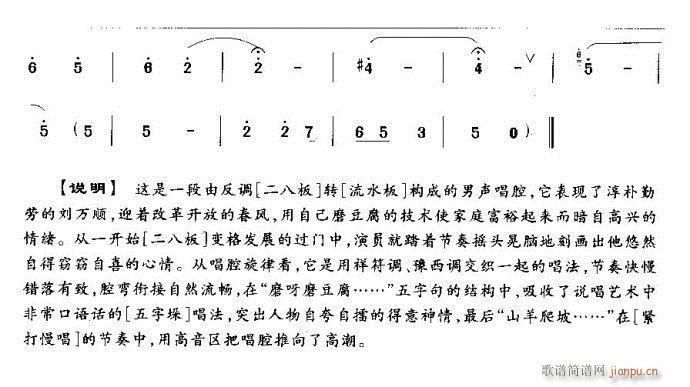 6 5 | 6 2 | 2 - | #4 - | 4 - ∨ | 6 5 - |
5 ( 5 | 5 - | 2 · | 2 2 7 | 6 5 3 | 5 0 ) ‖
【说明】 这是一段由反调[二八板]转[流水板]构成的男声唱腔,它表现了淳朴勤
劳的刘万顺,迎着改革开放的春风,用自己磨豆腐的技术使家庭富裕起来而暗自高兴的
情绪。从一开始[二八板]变格发展的过门中,演员就踏着节奏摇头晃脑地刻画出他悠然
自得窃窃自喜的心情。从唱腔旋律看,它是用祥符调、豫西调交织一起的唱法,节奏快慢
错落有致,腔弯衔接自然流畅,在“磨呀磨豆腐……”五字句的结构中,吸收了说唱艺术中
非常口语话的[五字垛]唱法,突出人物自夸自擂的得意神情、最后“山羊爬坡……”在[紧
打慢唱]的节奏中,用高音区把唱腔推向了高潮。
歌谱简谱网
jianpu.cn